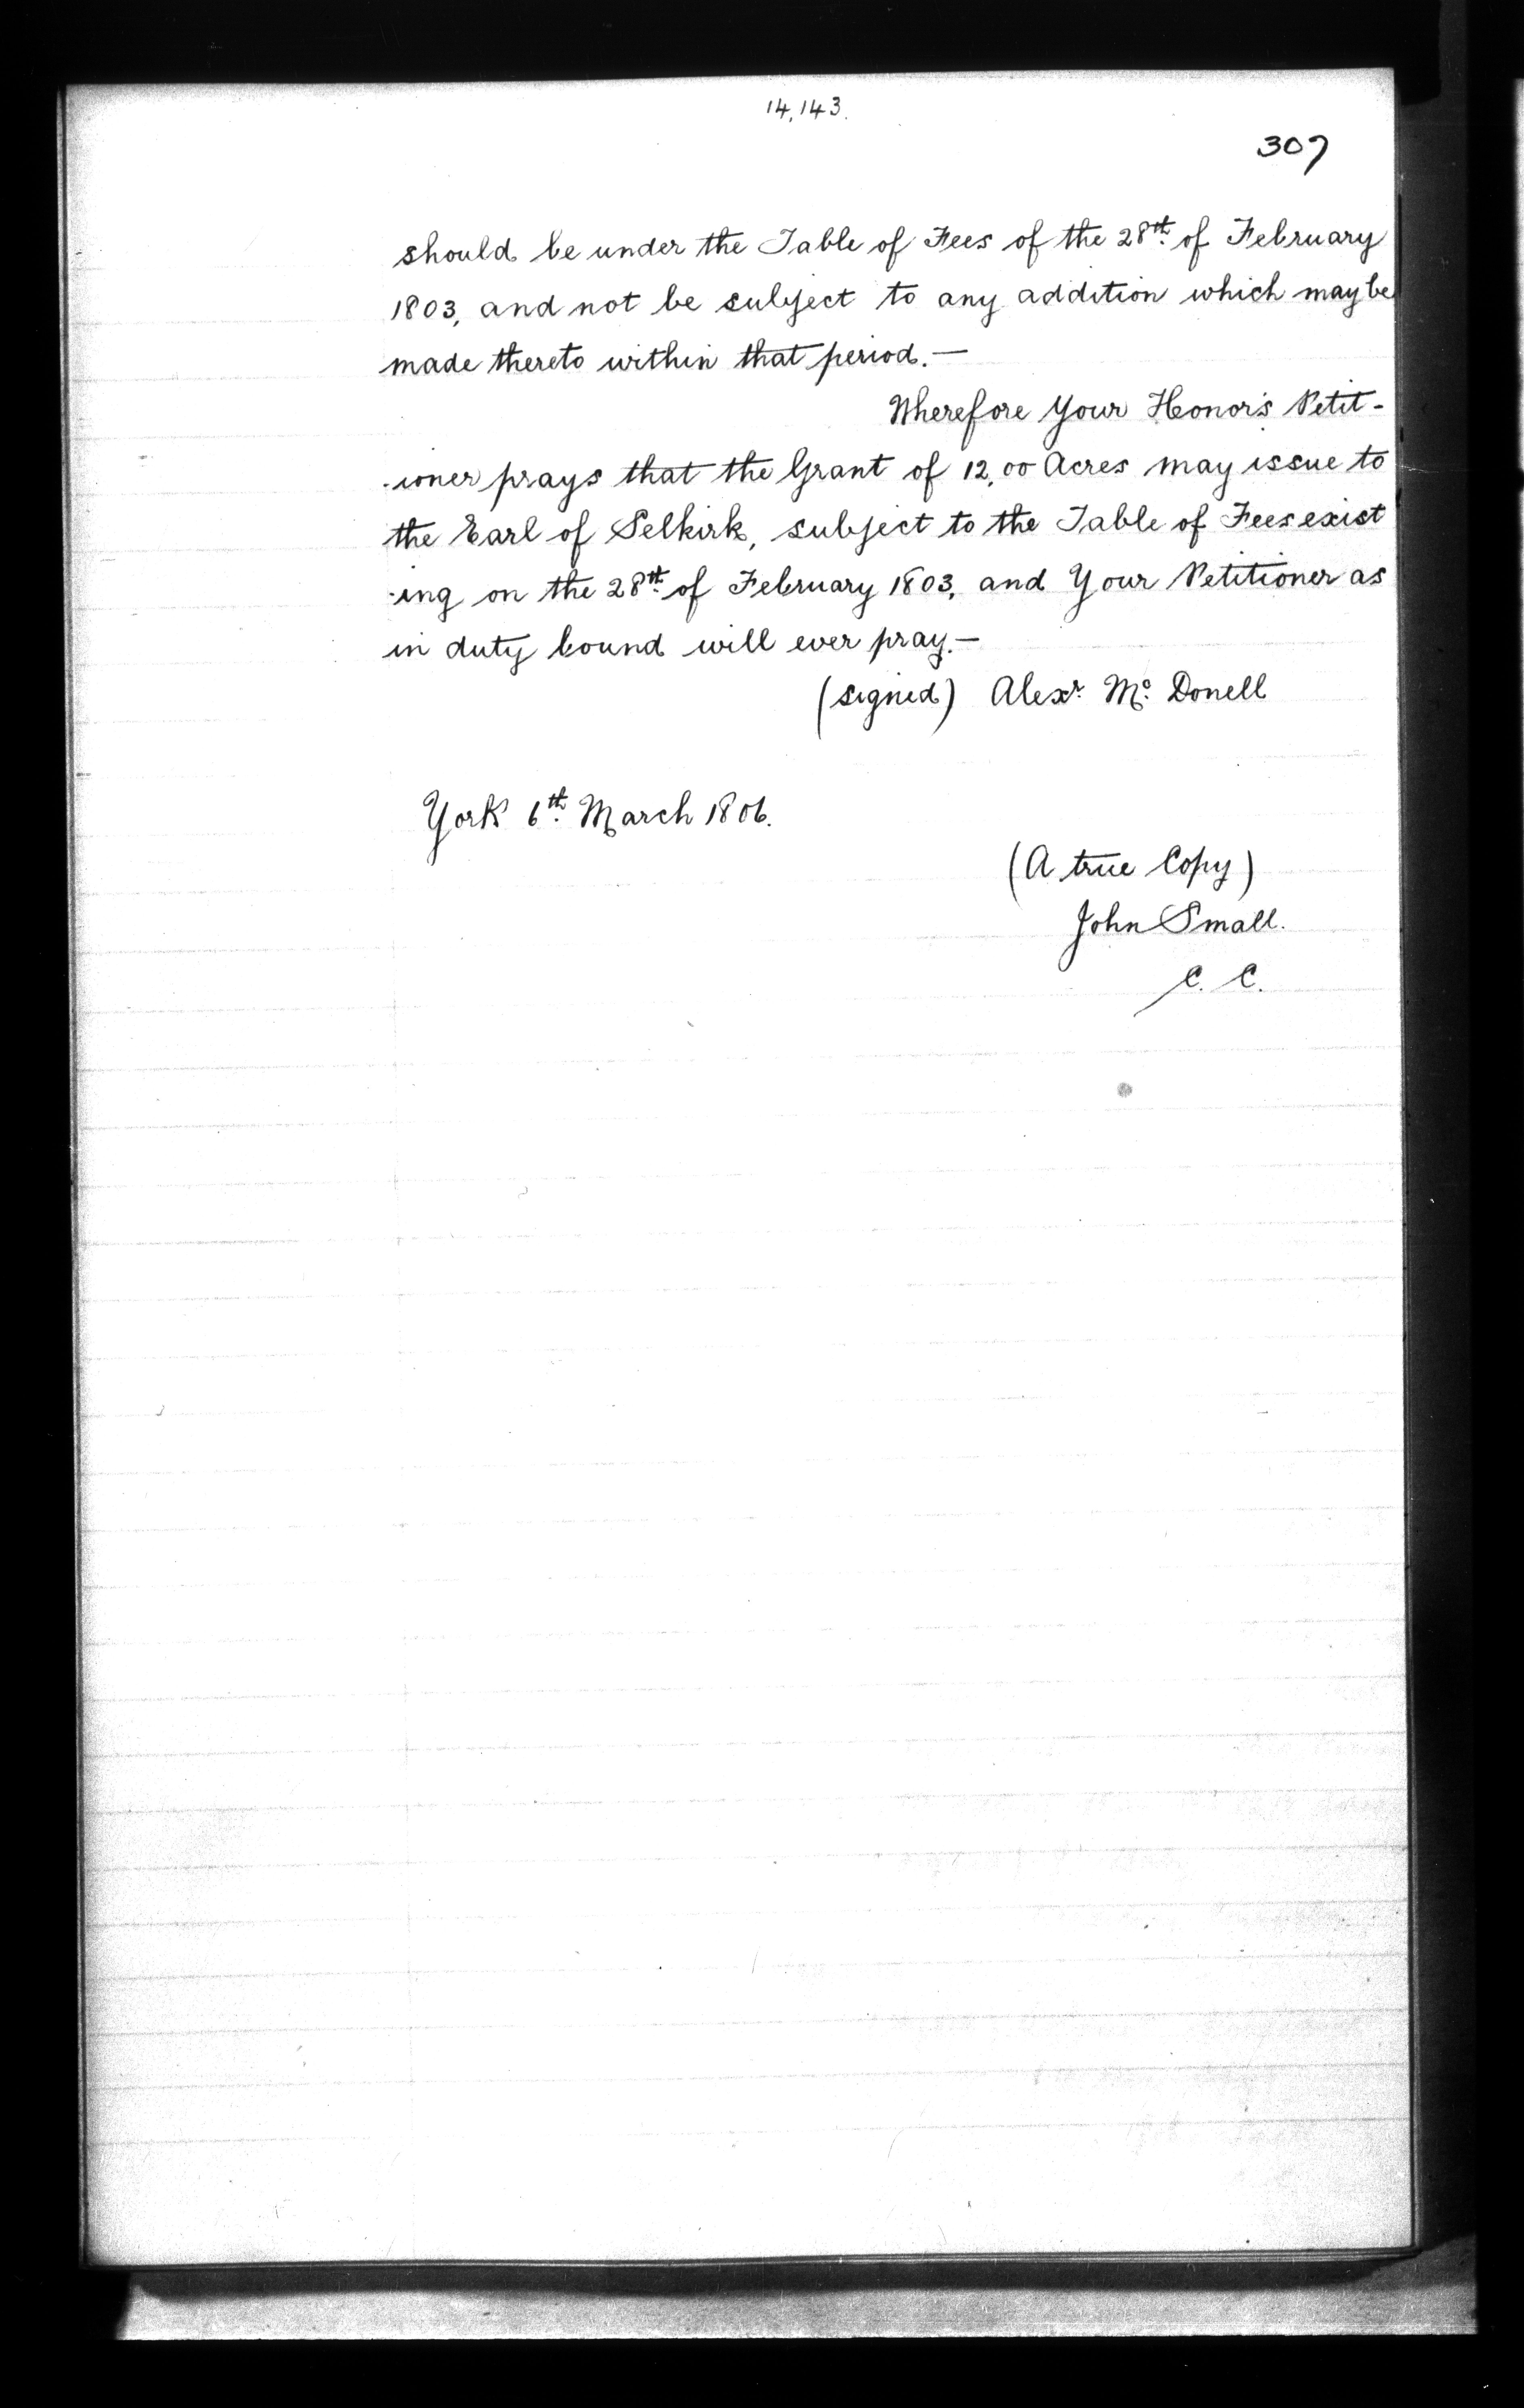 14,143.
307
should be under the Table of Fees of the 28th of February
1803, and not be subject to any addition which may be
made thereto within that period.—
Wherefore Your Honor's Petit-
-ioner prays that the Grant of 12,00 Acres may issue to
the Earl of Selkirk, subject to the Table of Fees exist
-ing on the 28th of February 1803, and Your Petitioner as
in duty bound will ever pray.—
(signed) Alexr. Mc. Donell
York 6th. March 1806.
(A true Copy)
John Small.
C. C.